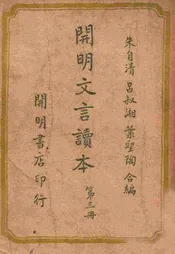 朱自清 呂叔湘 葉聖陶 合編
開明文言讀本
第三册
開明書店印行